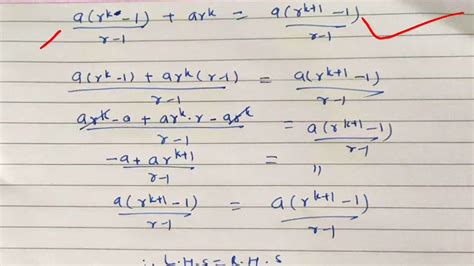 a(r^k - 1)/(r-1) + ar^k = a(r^(k+1) - 1)/(r-1)
a(r^k - 1) + ar^k(r-1)/(r-1) = a(r^(k+1) - 1)/(r-1)
ar^k - a + ar^k · r - ar^k/(r-1) = a(r^(k+1) - 1)/(r-1)
-a + ar^(k+1)/(r-1) = "
a(r^(k+1) - 1)/(r-1) = a(r^(k+1) - 1)/(r-1)
∴ L.H.S = R.H.S